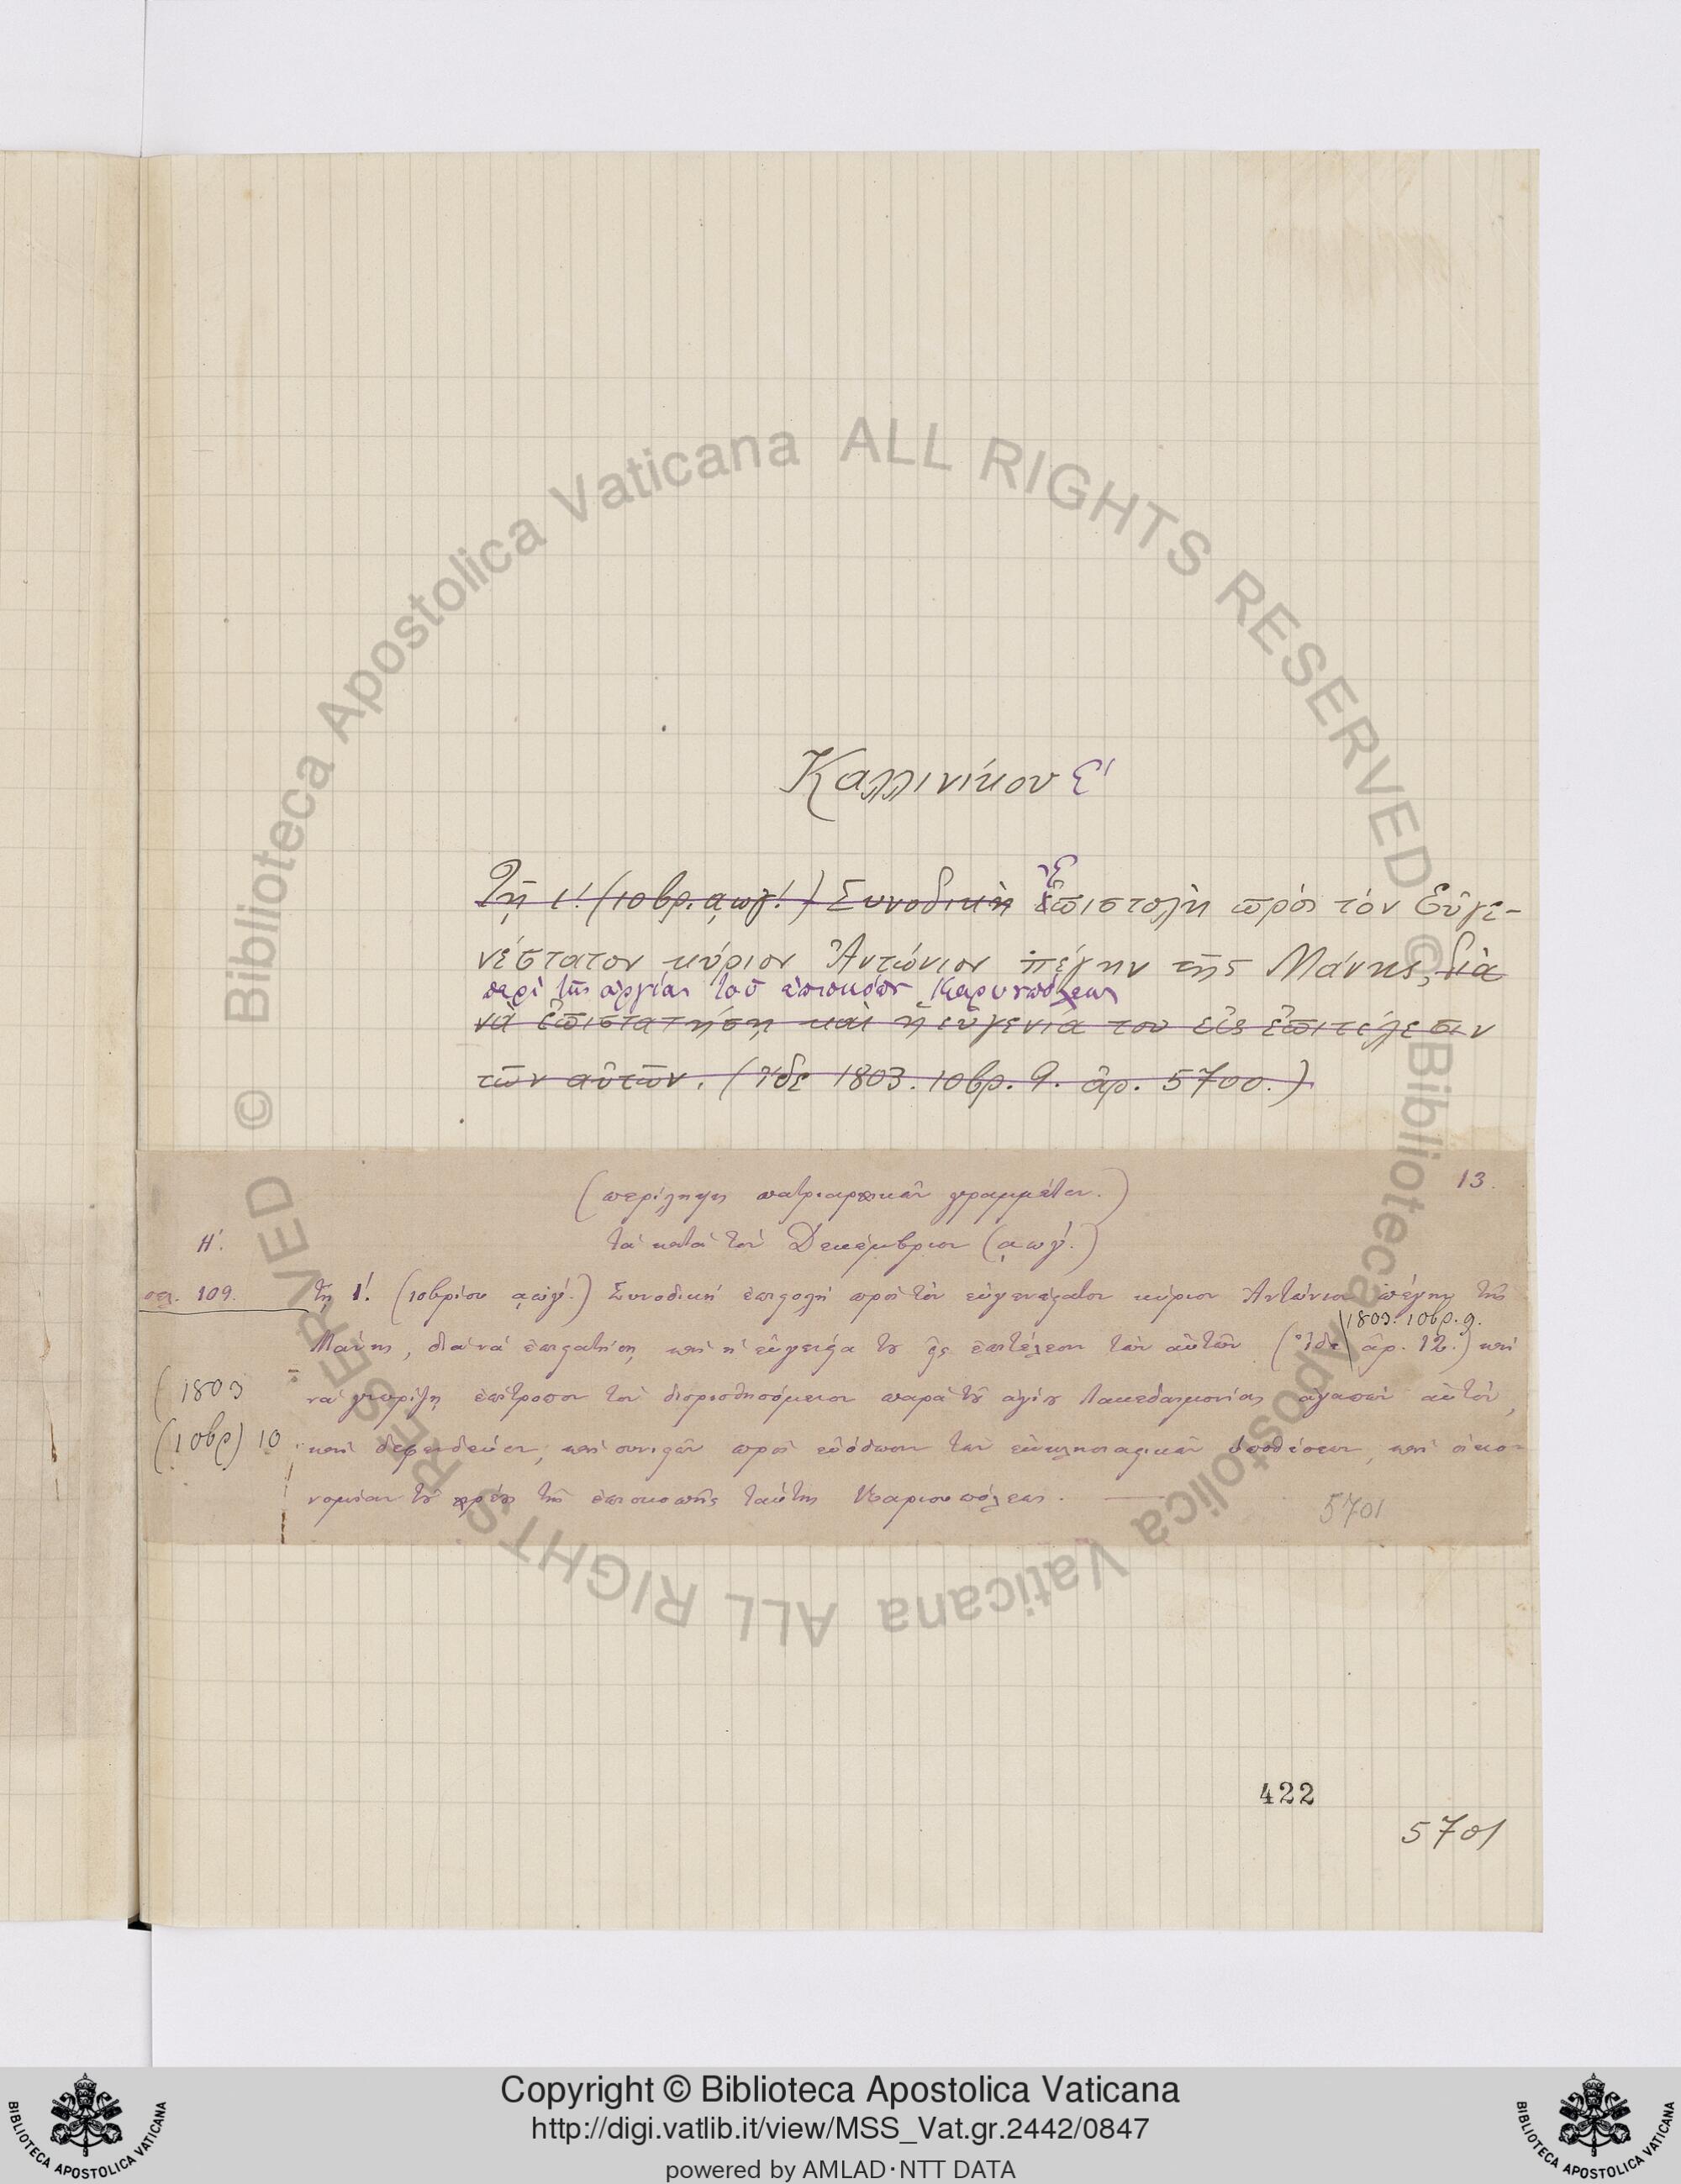 Καλλινίκου Ε'
Τῇ ι'. (10βρ. ͵αωγ'.) Συνοδικὴ Ἐπιστολὴ πρὸς τὸν Εὐγε-
νέστατον κύριον Ἀντώνιον πέγην τῆς Μάνης, διὰ
περὶ τῆς ἀργίας τοῦ ἐπισκόπου Καρυουπόλεως
νὰ ἐπιστατήσῃ καὶ ἡ εὐγενία του εἰς ἐπιτέλεσιν
τῶν αὐτῶν. (ἴδε 1803. 10βρ. 9. ἀρ. 5700.)
(περίληψις πατριαρχικῶν γραμμάτων.) 13.
Η'. τὰ κατὰ τὸν Δεκέμβριον (͵αωγ'.)
σελ. 109. τῇ ι'. (10βρίου ͵αωγ'.) Συνοδικὴ ἐπιστολὴ πρὸς τὸν εὐγενέστατον κύριον Ἀντώνιον πέγην τῆς
1803. 10βρ. 9.
Μάνης, διὰ νὰ ἐπιστατήσῃ καὶ ἡ εὐγενία του εἰς ἐπιτέλεσιν τῶν αὐτῶν (ἴδε ἀρ. 12.) καὶ
(1803 νὰ γνωρίζῃ ἐπίτροπον τὸν διορισθησόμενον παρὰ τοῦ ἁγίου Λακεδαιμονίας ἀγαπῶν αὐτόν,
(10βρ) 10 καὶ δεφενδεύων, καὶ συνιστῶν πρὸς εὐόδωσιν τῶν ἐκκλησιαστικῶν ὑποθέσεων, καὶ οἰκο-
νομίαν τοῦ χρέους τῆς ἐπισκοπῆς ταύτης Καριουπόλεως.
5701
422
5701
Copyright © Biblioteca Apostolica Vaticana
http://digi.vatlib.it/view/MSS_Vat.gr.2442/0847
powered by AMLAD·NTT DATA
BIBLIOTECA APOSTOLICA VATICANA
BIBLIOTECA APOSTOLICA VATICANA
© Biblioteca Apostolica Vaticana ALL RIGHTS RESERVED
© Biblioteca Apostolica Vaticana ALL RIGHTS RESERVED